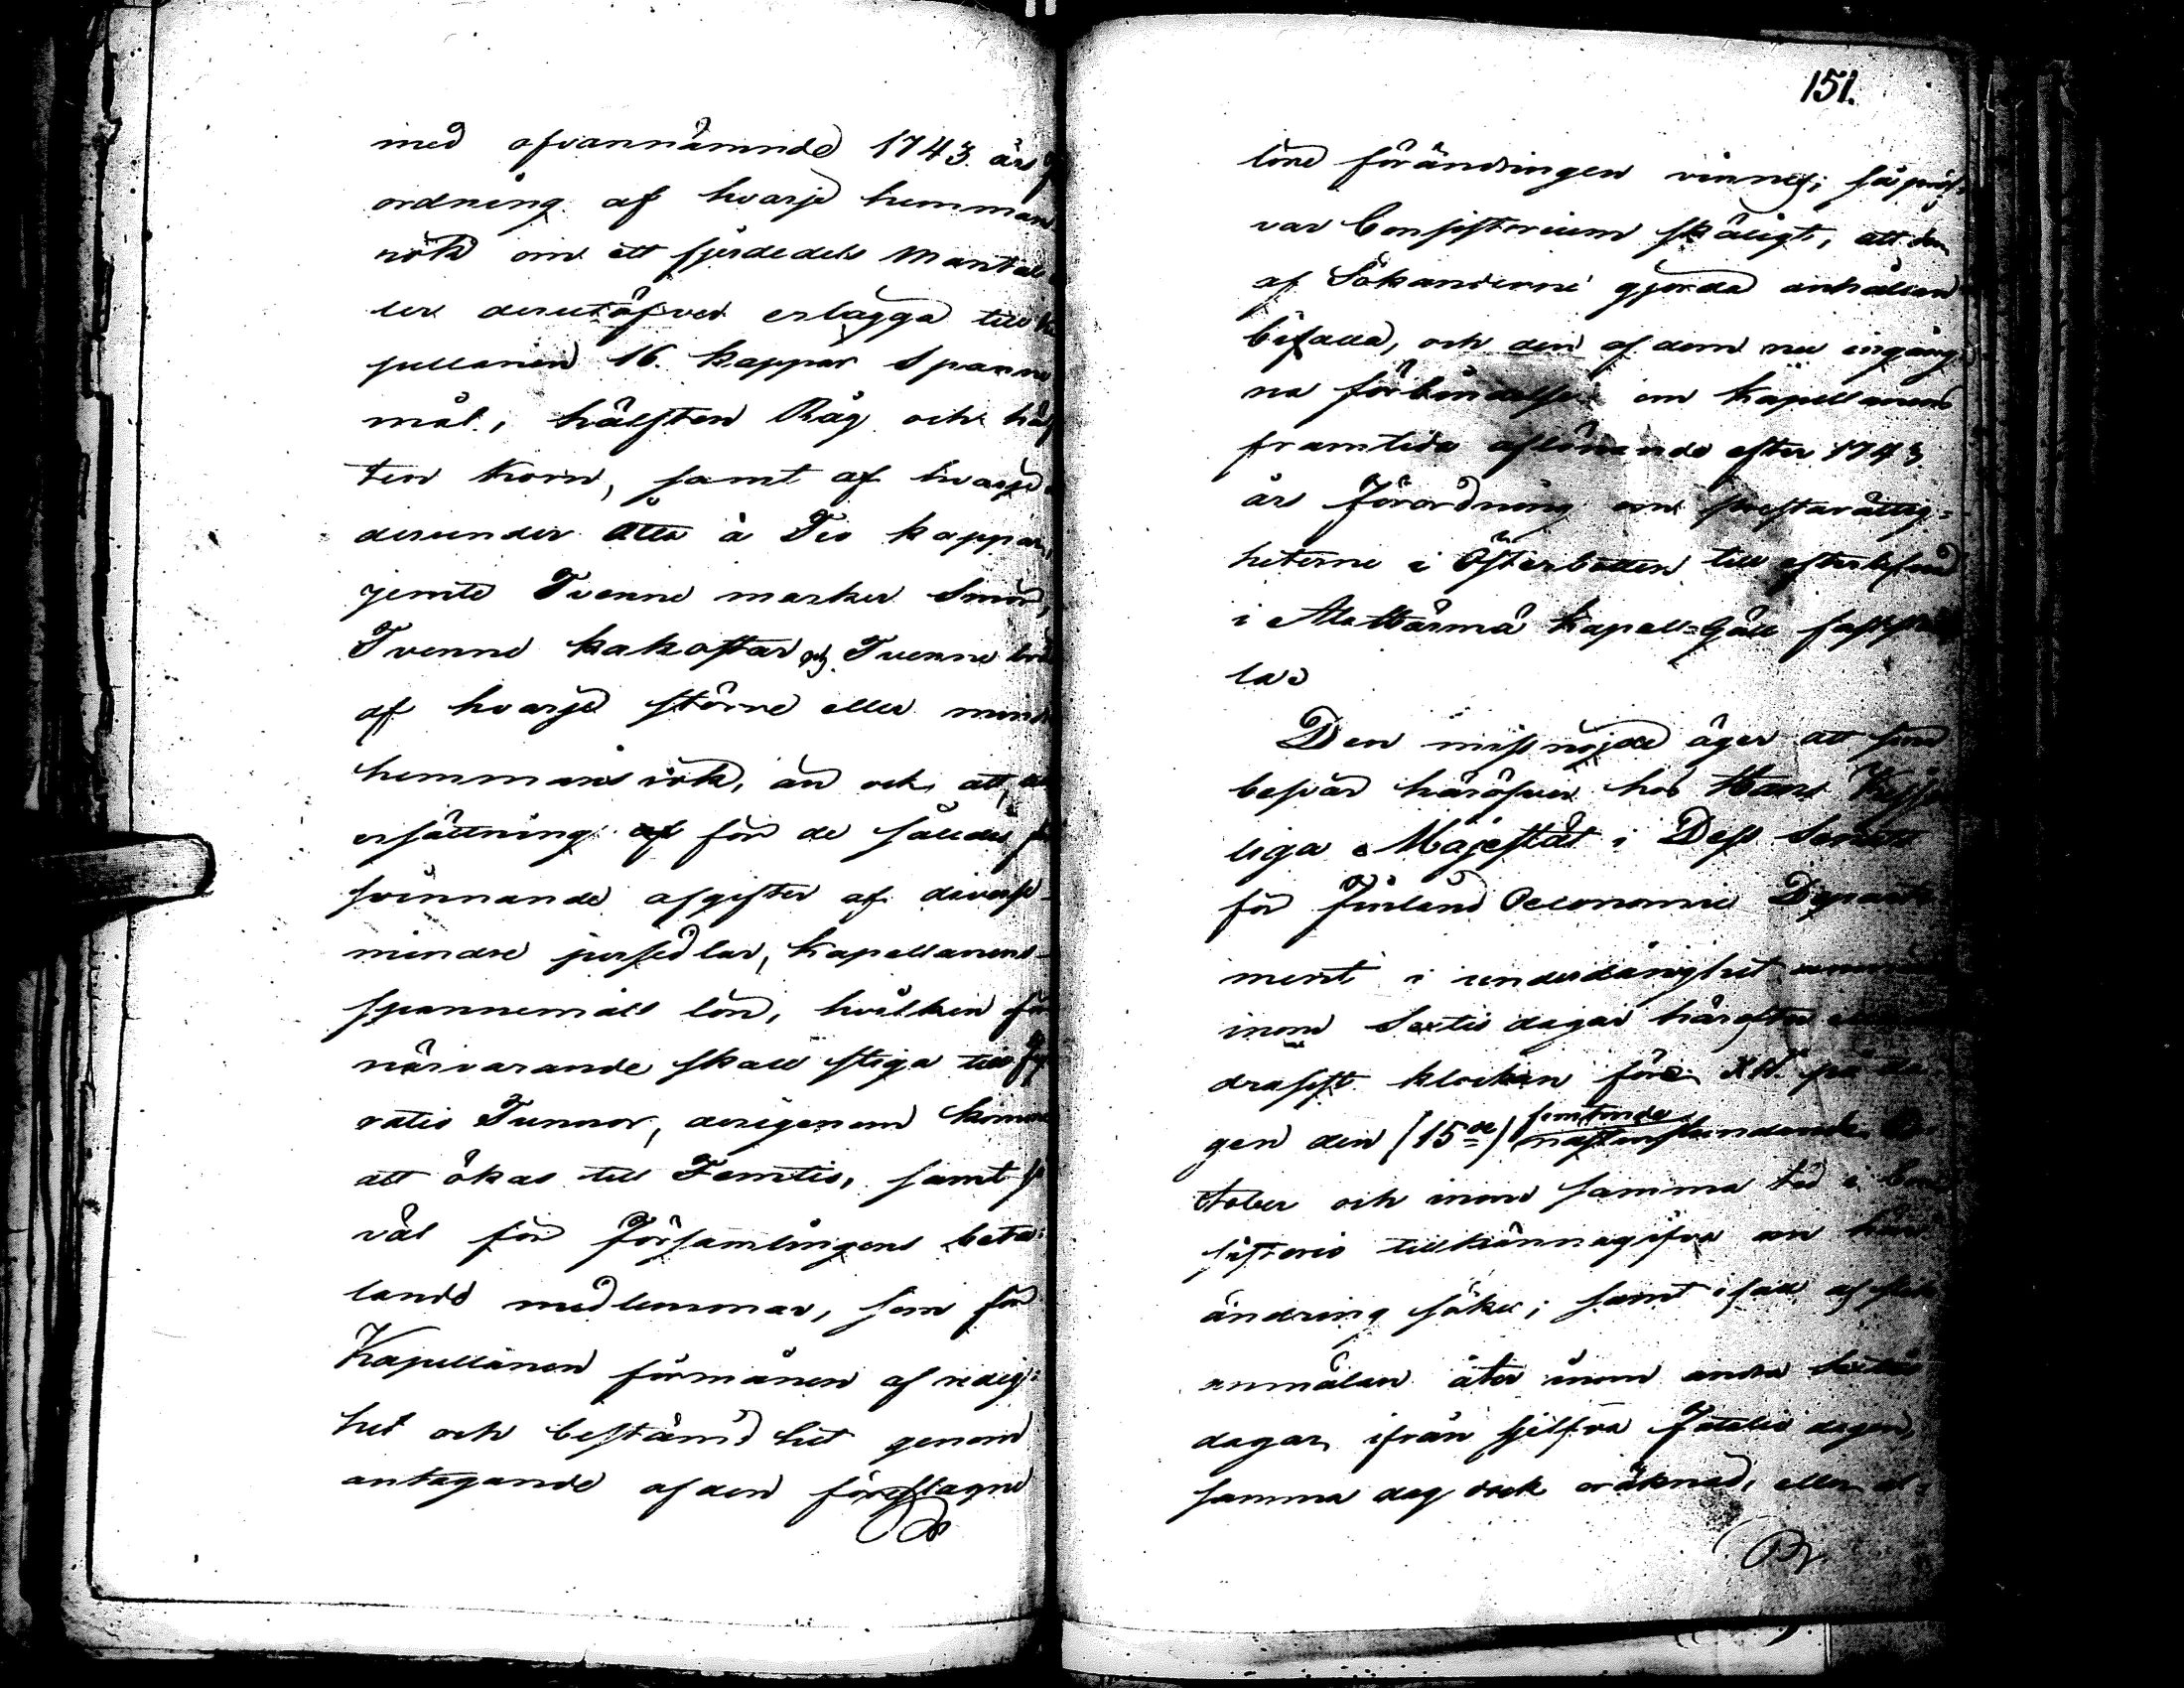 med ofvannämnde 1743. års
ordning af hvarje hemmans
rök om ett fjerdedels Mantal
ler derutöfver erlägga till
pellanen 16. kappar Spanne
mål, hälften Råg och häl
ten Korn, samt af hvarje
derunder Åtta à Tio kappar,
jemte Tvenne marker Smör,
Tvenne kakostar och Tvenne
af hvarje större eller mind
hemmans rök, än ock, att,
ersättning för de således
svinnande afgifter af diverse
mindre persedlar, Kapellanens
spannemåls lön, hvilken för
närvarande skall stiga till fy
ratio Tunnor, derigenom komme
att ökas till Femtio, samt så
väl för Församlingens beta-
lande medlemmar, som för
Kapellanen förmånen af redig-
het och bestämdhet genom
antagande af den föreslagne
151.
löne förändringen vinnes; så pröf-
var Consistorium skäligt, att den
af Sökanderne gjorda anhållan
bifalla, och den af dem nu ingång-
na förbindelse om Kapellanens
framtida aflönande efter 1743
års Förordning om prestarättig-
heterne i Österbotten till efterlefnad
i Alahärmä Kapell-Gäll faststäl
las
Den missnöjde äger att sina
besvär häröfver hos Hans Kejser
liga Majestät i Dess Senat
för Finland Oeconomie Departe
ment i underdånighet
inom Sextio dagar härefter
drasist klockan före XII. på da
gen den (15de) femtonde nästinstundande O
ctober och inom samma tid i Con
sistorio tillkännagifva om han
ändring söker; samt i fall af slik
anmälan åter inom andra Sextio
dagar, ifrån sjelfva Fatalie dagen,
samma dag dock oräknad, eller